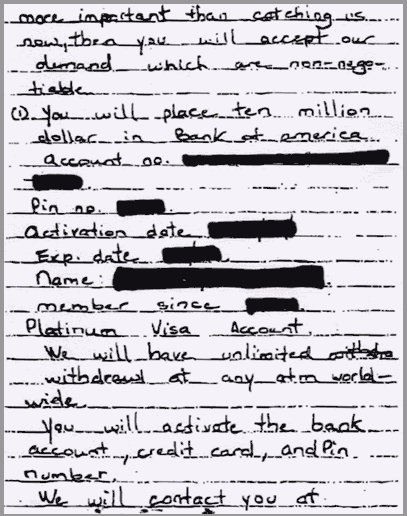 more important than catching us
now, then you will accept our
demand which are non-nego-
tiable
(1) You will place ten million
dollar in Bank of america
account no.
.
Pin no.
Activation date
Exp. date
Name: .
member since
Platinum Visa Account.
We will have unlimited
withdrawl at any atm world-
wide
You will activate the bank
account, credit card, and Pin
number.
We will contact you at